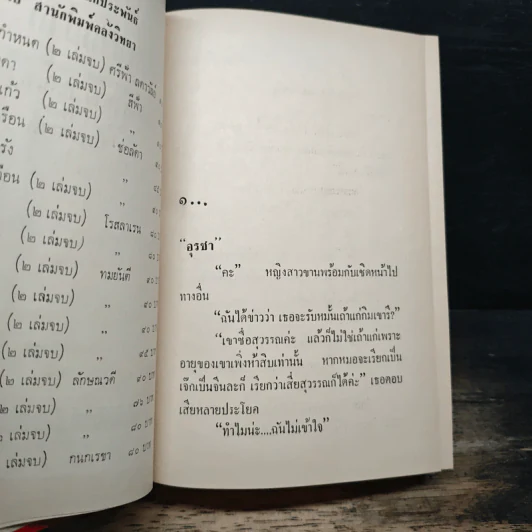 กประพันธ์
สำนักพิมพ์คลังวิทยา
กำหนด (๒ เล่มจบ) ศรีฟ้า ลดาวัลย์
(๒ เล่มจบ) สีฟ้า
แก้ว (๒ เล่มจบ) ”
เรือน (๒ เล่มจบ) ช่อลัดา
(๒ เล่มจบ) ”
(๒ เล่มจบ) ”
(๒ เล่มจบ) โรสลาเรน
(๒ เล่มจบ) ”
(๒ เล่มจบ) ”
(๒ เล่มจบ) ทมยันตี ๔๐ บาท
(๒ เล่มจบ) ”
(๒ เล่มจบ) ”
(๒ เล่มจบ) ”
(๒ เล่มจบ) ลักษณวดี ๔๐ บาท
๒ เล่มจบ) ” ๘๖ บาท
๒ เล่มจบ) ” ๘๐ บาท
เล่มจบ) กนกเรขา ๘๐ บาท
๑...
“อุรชา”
“คะ” หญิงสาวขานพร้อมกับเชิดหน้าไป
ทางอื่น
“ฉันได้ข่าวว่า เธอจะรับหมั้นเถ้าแก่กิมเฮารึ?”
“เขาชื่อสุวรรณค่ะ แล้วก็ไม่ใช่เถ้าแก่เพราะ
อายุของเขาเพิ่งห้าสิบเท่านั้น หากหมอจะเรียกเป็น
เจ๊กเป็นจีนละก็ เรียกว่าเสี่ยสุวรรณก็ได้ค่ะ” เธอตอบ
เสียหลายประโยค
“ทำไมน่ะ....ฉันไม่เข้าใจ”